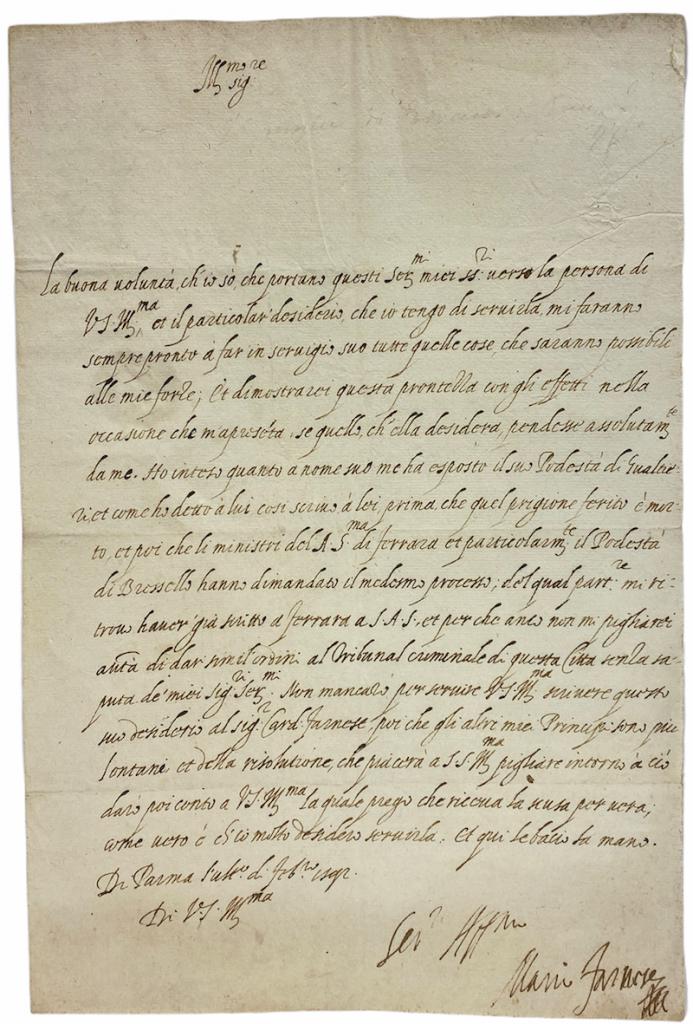 Ill.mo re
sig.
La buona voluntà, ch'io sò, che portano questi Ser.mi miei ss.ri verso la persona di
V.S. Ill.ma, et il particolar' desiderio, che io tengo di servirla, mi faranno
sempre pronto à far in servigio suo tutte quelle cose, che saranno possibili
alle mie forze; Et dimostrarei questa prontezza con gli effetti nella
occasione che m'apreséta, se quello, ch'ella desidera, pendesse assolutam.te
da me. Ho inteso quanto a nome suo me ha esposto il suo Podestà di Gualtie-
ri, et come hò detto à lui così scrivo à lei, prima, che quel prigione ferito è mor-
to, et poi che li ministri del A.S.ma di ferrara et particolarm.te il Podestà
di Bressello hanno dimandato il medesmo processo; del qual part.re mi ri-
trovo haver' già scritto a ferrara a S.A.S. et per che anco non mi pigliarei
autà di dar simil'ordini al Tribunal criminale di questa Città senza sa-
puta de' miei Sig.ri Ser.mi. Non mancarò per servire V.S. Ill.ma scrivere questo
suo desiderio al sig.r Card. farnese, poi che gli altri miei Principi sono più
lontani et della risolutione, che piacerà a S.S. Ill.ma pigliare intorno a ciò
darò poi conto a V.S. Ill.ma la quale prego che riceva la scusa per vera;
come vero è ch'io molto desidero servirla. Et qui le bacio la mano.
Di Parma l'ult.o di feb.ro 1592.
Di V.S. Ill.ma
Ser.r Aff.mo
Mario Farnese